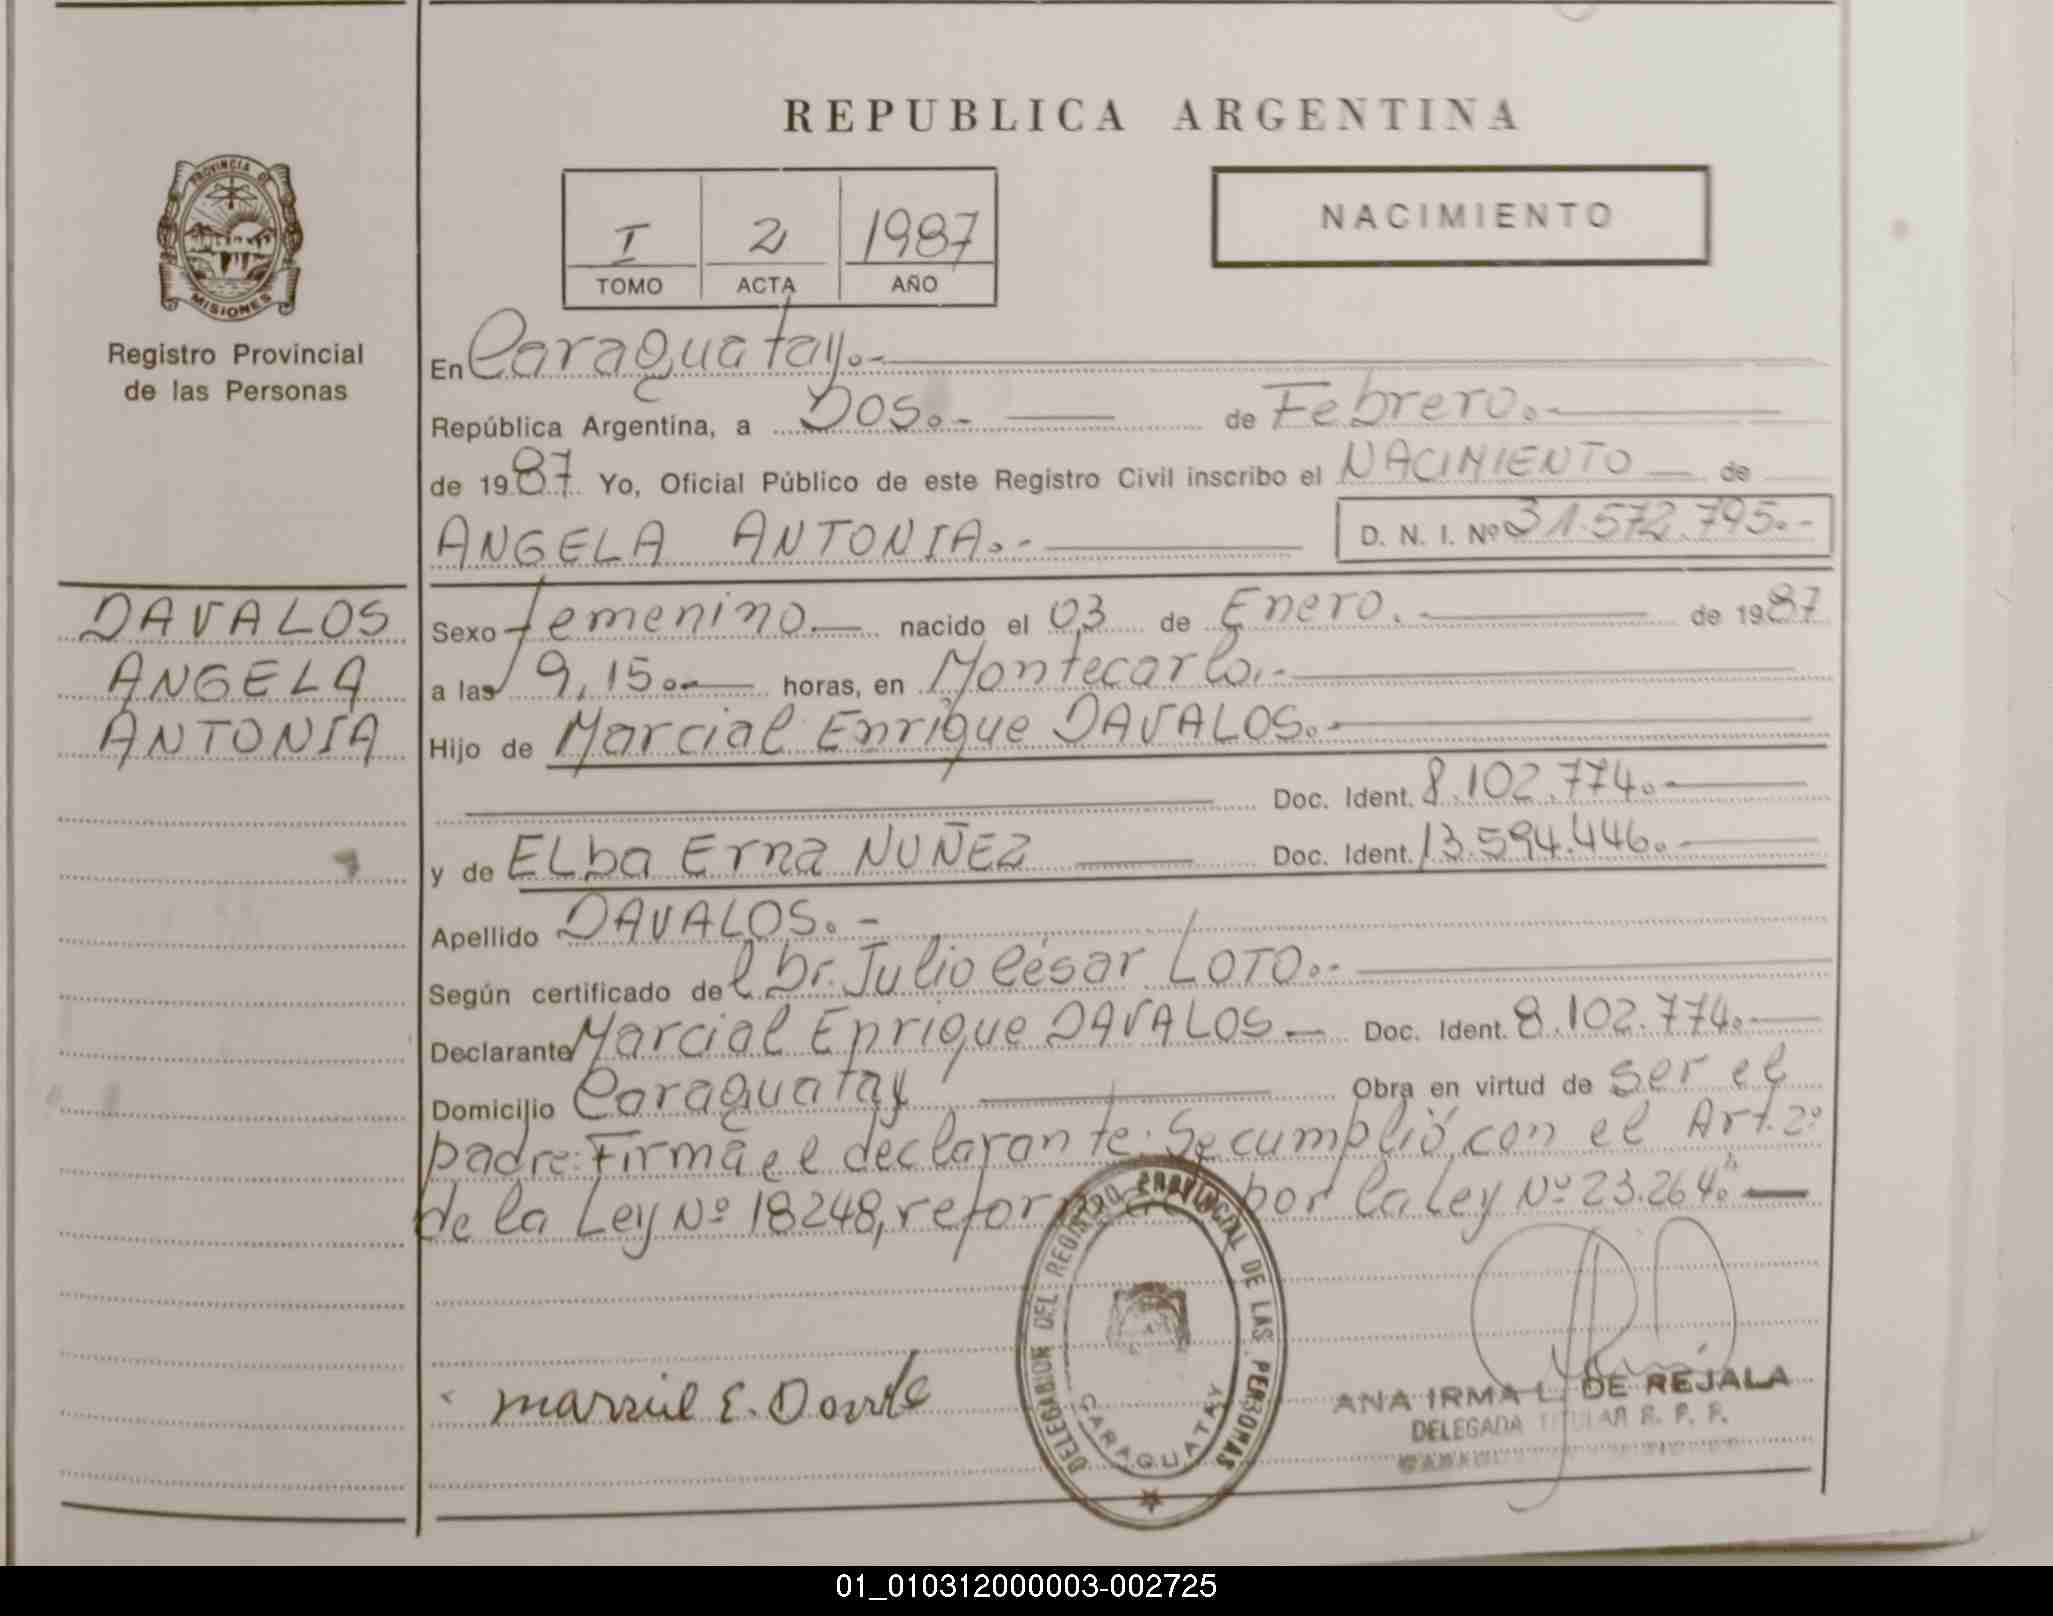 REPUBLICA ARGENTINA
PROVINCIA DE
MISIONES
Registro Provincial
de las Personas
I 2 1987
TOMO ACTA AÑO
NACIMIENTO
En Caraguatay.-
República Argentina, a Dos.- de Febrero.-
de 1987 Yo, Oficial Público de este Registro Civil inscribo el NACIMIENTO de
ANGELA ANTONIA.- D. N. I. Nº 31.572.795.-
DAVALOS
ANGELA
ANTONIA
Sexo femenino nacido el 03 de Enero. de 1987
a las 9,15.- horas, en Montecarlo.-
Hijo de Marcial Enrique DAVALOS.-
Doc. Ident. 8.102.774.-
y de ELba Erna NUÑEZ Doc. Ident. 13.594.446.-
Apellido DAVALOS.-
Según certificado del Dr. Julio César LOTO.-
Declarante Marcial Enrique DAVALOS Doc. Ident. 8.102.774.-
Domicilio Caraguatay Obra en virtud de ser el
padre: Firma el declarante. Se cumplió con el Art. 2º
de la Ley Nº 18248, por la Ley Nº 23.264.-
DELEGACION DEL REGISTRO PROVINCIAL DE LAS PERSONAS
CARAGUATAY
ANA IRMA L. DE REJALA
DELEGADA TITULAR R. P. P.
01_010312000003-002725